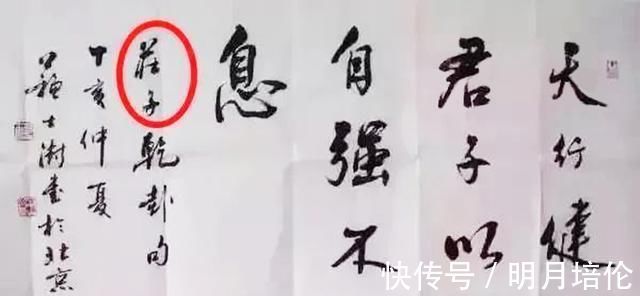 天行健
君子以
自强不
息
莊子乾卦句
丁亥仲夏
士澍書於北京
快传号 / 明月培伦